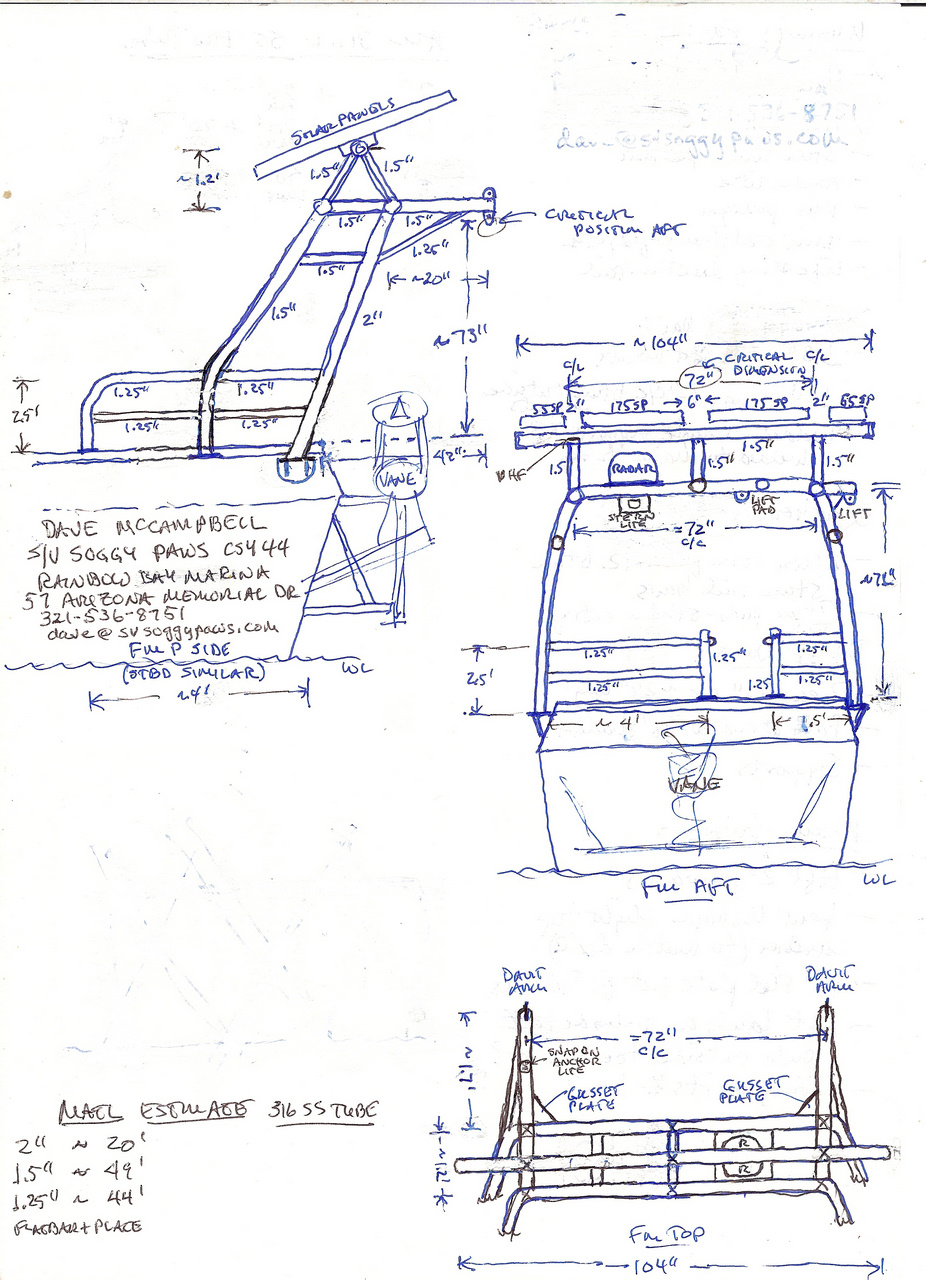 SOLAR PANELS
~1.2'
1.5"
1.5"
1.5"
1.5"
CRITICAL
POSITION AFT
1.25"
1.5"
~20"
1.5"
2"
~73"
2.5'
1.25"
1.25"
1.25"
1.25"
42"
VANE
DAVE MCCAMPBELL
S/V SOGGY PAWS CSY 44
RAINBOW BAY MARINA
57 ARIZONA MEMORIAL DR
321-536-8751
dave@svsoggypaws.com
FM P SIDE
(STBD SIMILAR)
WL
~4'
~104"
C/L
CRITICAL
DIMENSION
C/L
72"
55SP
2"
175SP
6"
175SP
2"
55SP
VHF
1.5
RADAR
1.5"
1.5"
1.5"
STERN
LITE
LIFT
PAD
LIFT
=72"
C/C
~71"
2.5'
1.25"
1.25"
1.25"
1.25"
1.25
1.25"
~4'
1.5'
VANE
FM AFT
WL
DAVIT
ARM
DAVIT
ARM
=72"
C/C
SNAP ON
ANCHOR
LITE
GUSSET
PLATE
GUSSET
PLATE
R
R
FM TOP
104"
MATL ESTIMATE 316 SS TUBE
2" ~ 20'
1.5" ~ 49'
1.25" ~ 44'
FLATBAR + PLATE